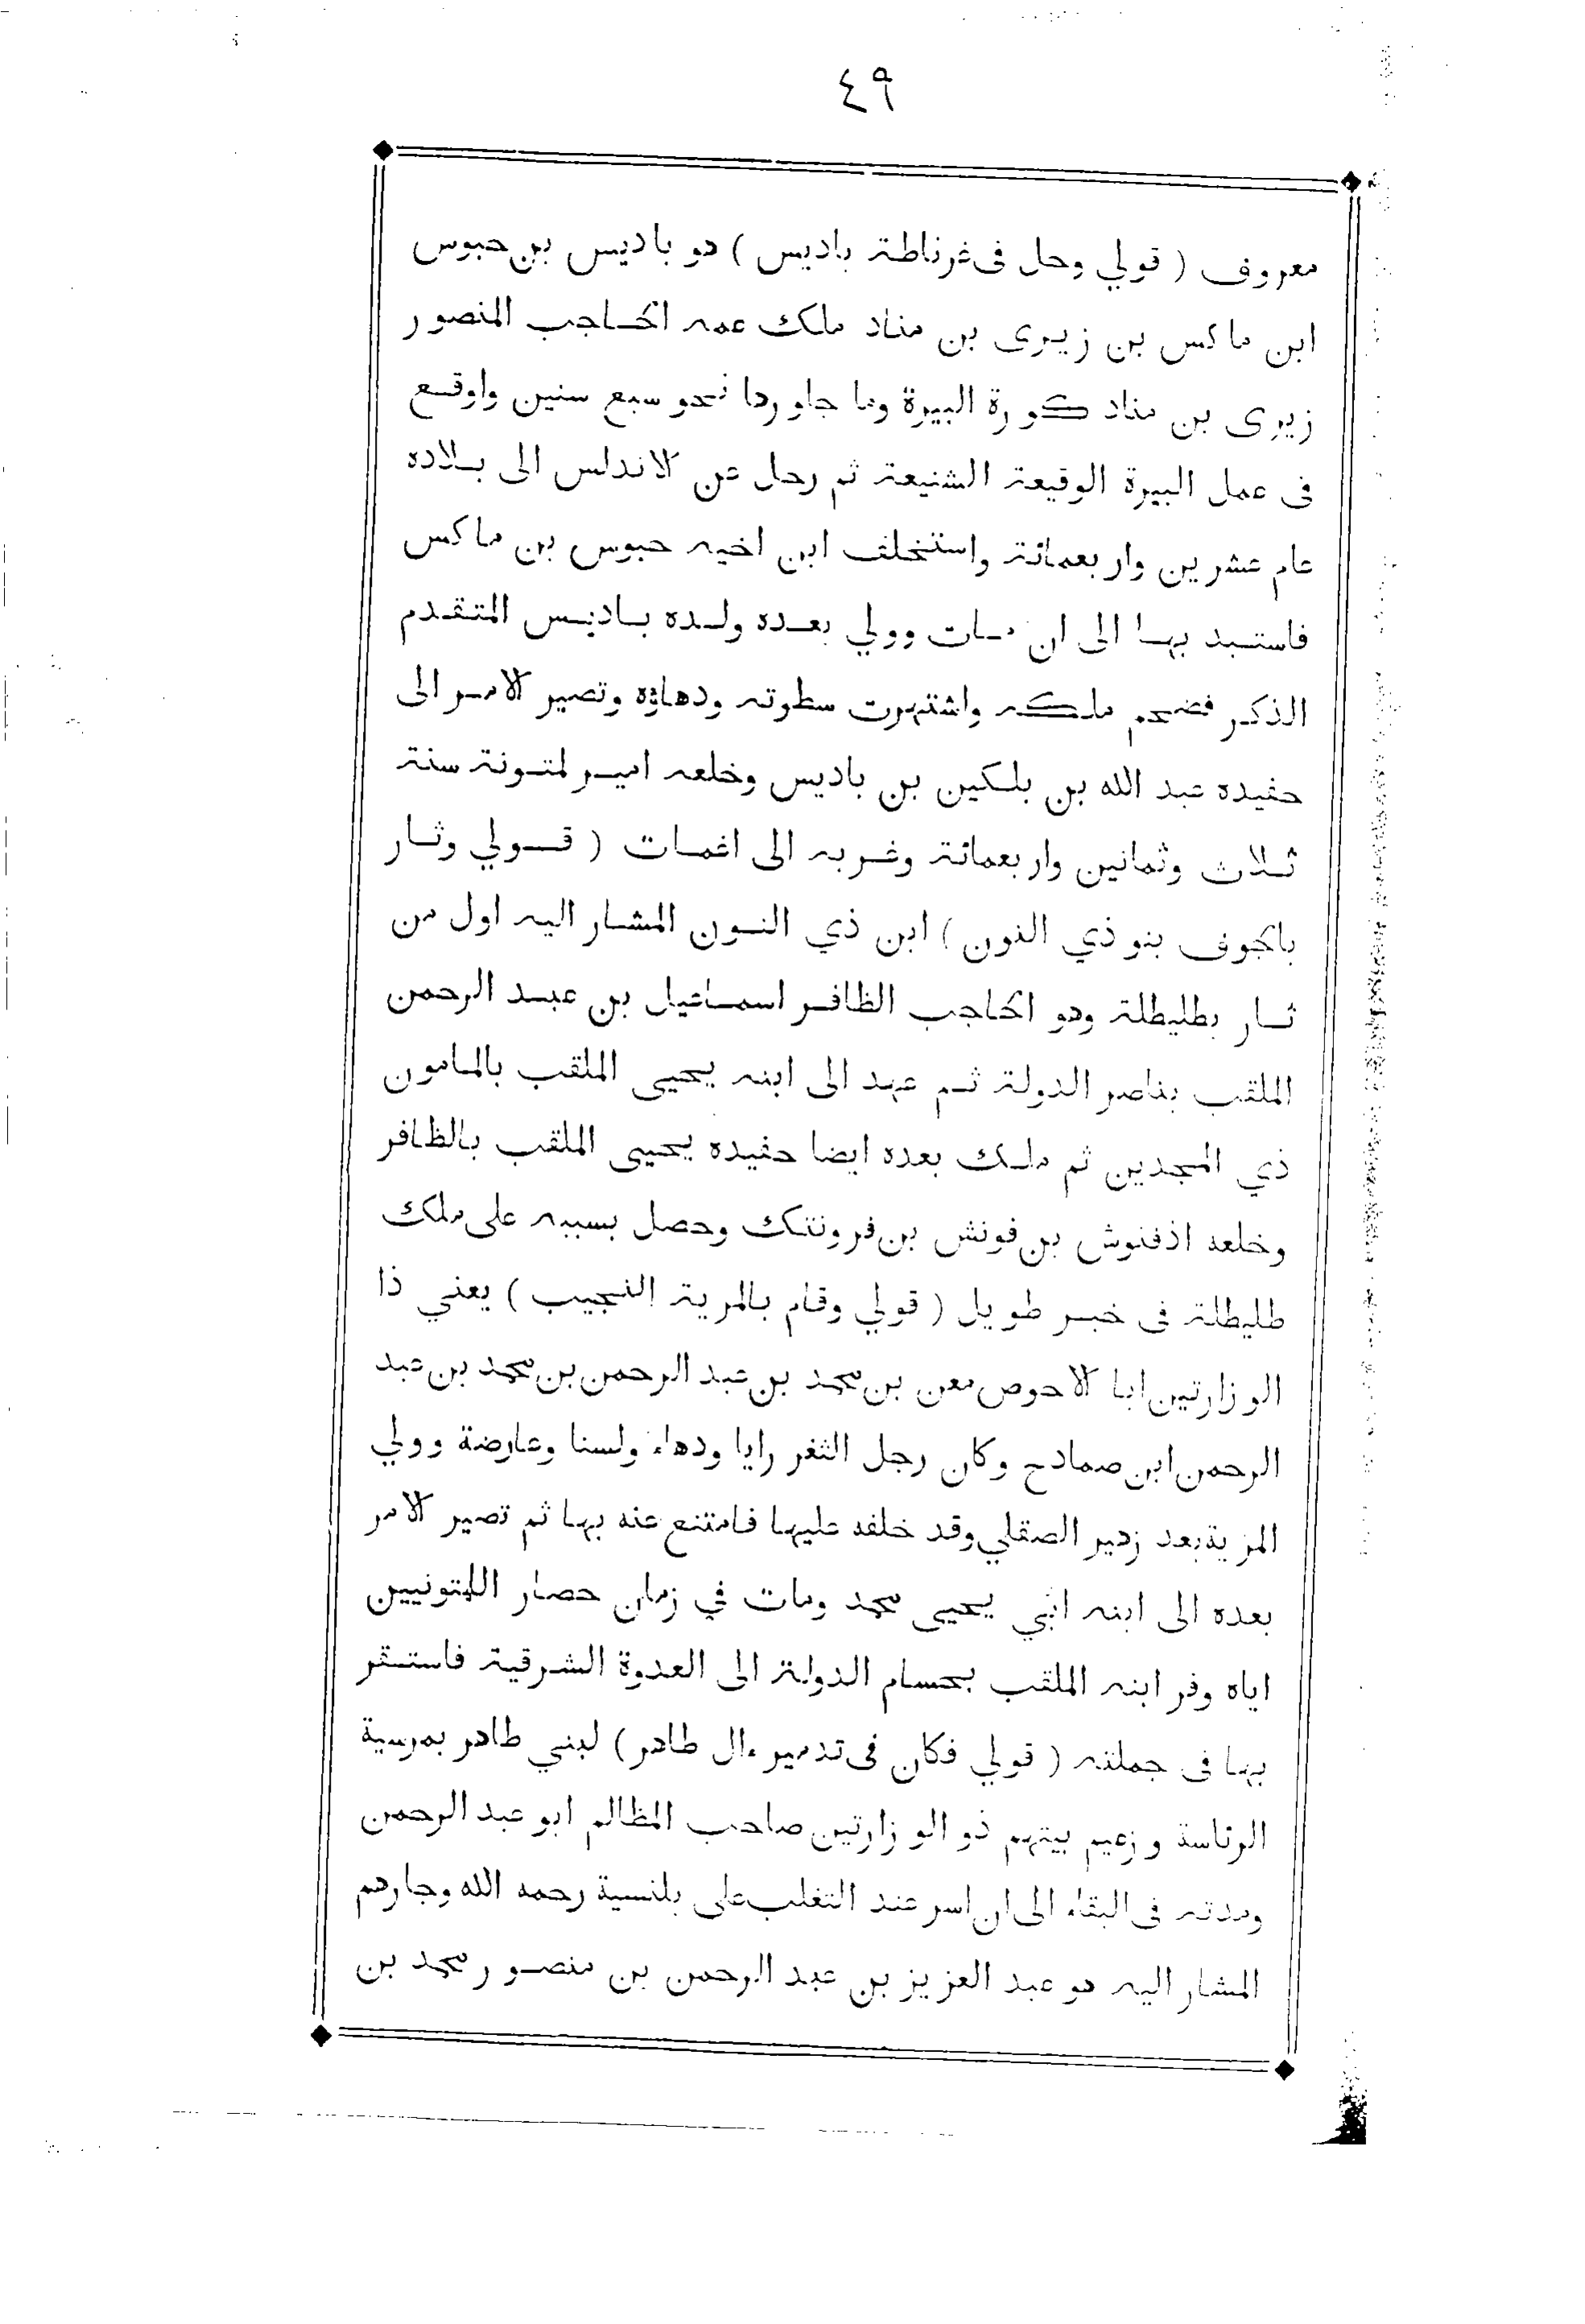 ٤٩
معروف ( قولي وحل فى غرناطة باديس ) هو باديس بن حبوس
ابن ماكس بن زيرى بن مناد ملك عمه الحاجب المنصور
زيرى بن مناد كورة البيرة وما جاورها نحو سبع سنين واوقع
فى عمل البيرة الوقيعة الشنيعة ثم رحل عن الاندلس الى بلاده
عام عشرين واربعمائة واستخلف ابن اخيه حبوس بن ماكس
فاستبد بها الى ان مات وولي بعده ولده باديس المتقدم
الذكر فضخم ملكه واشتهرت سطوته ودهاؤه وتصير الامر الى
حفيده عبد الله بن بلكين بن باديس وخلعه امير لمتونة سنة
ثلاث وثمانين واربعمائة وغربه الى اغمات ( قولي وثار
بالجوف بنو ذي النون ) ابن ذي النون المشار اليه اول من
ثار بطليطلة وهو الحاجب الظافر اسماعيل بن عبد الرحمن
الملقب بناصر الدولة ثم عهد الى ابنه يحيى الملقب بالمامون
ذي المجدين ثم ملك بعده ايضا حفيده يحيى الملقب بالظافر
وخلعه اذفنوش بن فونش بن فرونتك وحصل بسببه على ملك
طليطلة فى خبر طويل ( قولي وقام بالمرية النجيب ) يعني ذا
الوزارتين ابا الاحوص معن بن محمد بن عبد الرحمن بن محمد بن عبد
الرحمن ابن صمادح وكان رجل الثغر رايا ودهاء ولسنا وعارضة وولي
المرية بعد زهير الصقلي وقد خلفه عليها فامتنع عنه بها ثم تصير الامر
بعده الى ابنه ابي يحيى محمد ومات في زمان حصار اللمتونيين
اياه وفر ابنه الملقب بحسام الدولة الى العدوة الشرقية فاستقر
بها فى جملته ( قولي فكان فى تدمير ءال طاهر ) لبني طاهر بمرسية
الرئاسة وزعيم بيتهم ذو الوزارتين صاحب المظالم ابو عبد الرحمن
ومدته فى البقاء الى ان اسر عند التغلب على بلنسية رحمه الله وجارهم
المشار اليه هو عبد العزيز بن عبد الرحمن بن منصور محمد بن